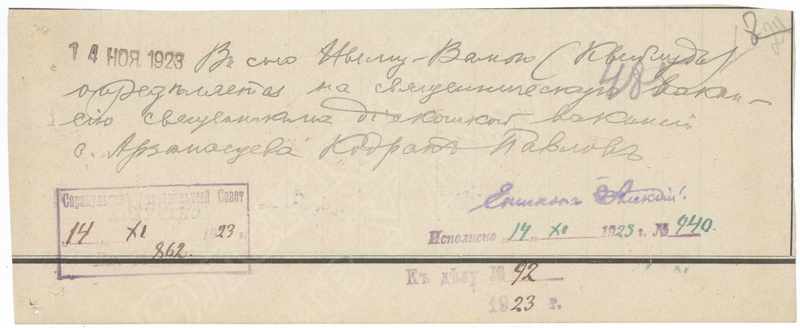 8
14 НОЯ 1923 Въ село
48
определяется на священническую вакан-
сію священникъ діаконской вакансіи
с. Арзамасцева Кодратъ Павловъ
Епископъ Алексій.
Сарапульскій Совет
14 XI 1923 г.
862.
Исполнено 14 XI 1923 г. № 940.
Къ дѣлу № 92
1923 г.